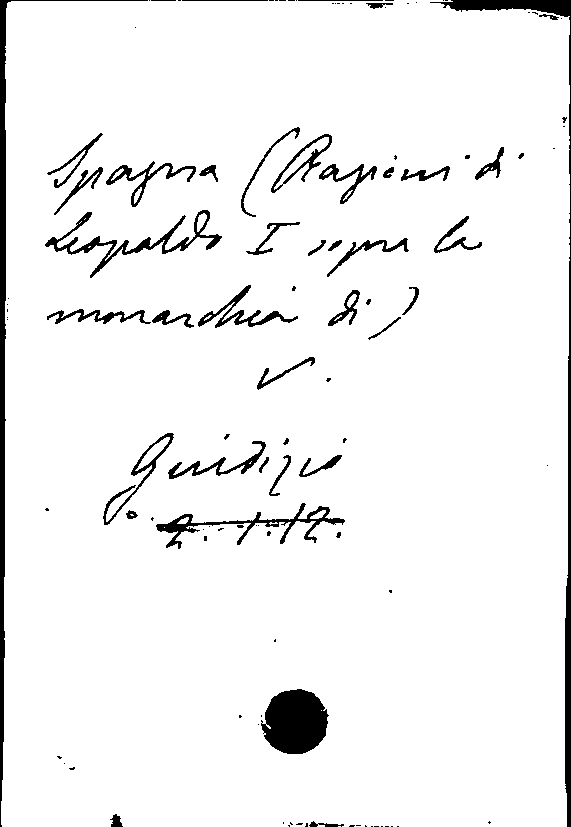 Spagna (Ragioni di
Leopoldo I sopra la
monarchia di)
V.
Giudizio
2. 1. 12.